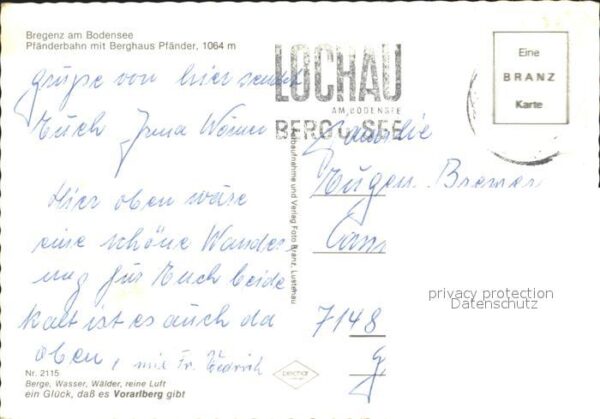 Bregenz am Bodensee
Pfänderbahn mit Berghaus Pfänder, 1064 m
Grüße von hier sendet
Euch Irma
Hier oben wäre
eine schöne Wander
ung für Euch beide
kalt ist es auch da
oben, mit Fr.
Nr. 2115
Berge, Wasser, Wälder, reine Luft
ein Glück, daß es Vorarlberg gibt
Farbaufnahme und Verlag Foto Branz, Lustenau
LOCHAU
AM BODENSEE
BERG U. SEE
Eine
BRANZ
Karte
Familie
Eugen Bremer
7148
privacy protection
Datenschutz